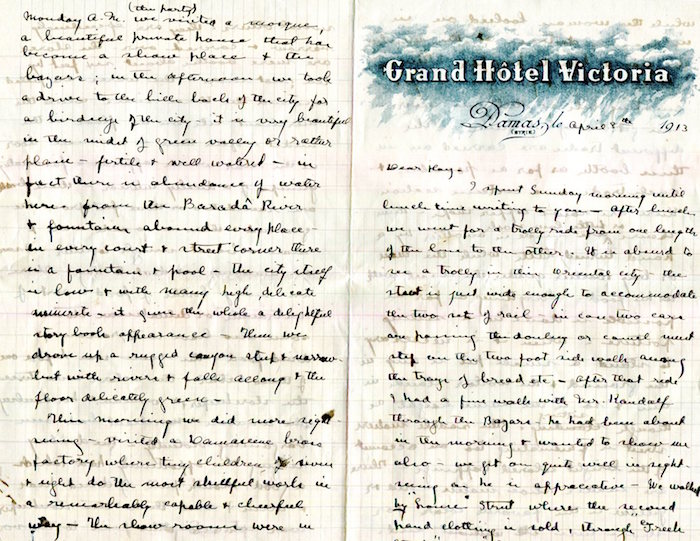 Grand Hôtel Victoria
Damas, le April 8th 1913
(SYRIE)
Dear
I spent Sunday morning until
lunch time writing to you – After lunch
we went for a trolly ride from one length
of the line to the other. It is absurd to
see a trolly in this Oriental city the
street is just wide enough to accommodate
the two set of rail – in case two cars
are passing the donkey or camel must
step on the two foot side walk among
the trays of bread etc – After that ride
I had a fine walk with Mr.
through the Bazars – he had been about
in the morning & wanted to show me
also – we get on quite well in sight-
seeing as he is appreciative – We walked
by Street where the second
hand clothing is sold, through "Greek
(the party)
Monday A.M. we visited a mosque,
a beautiful private house that has
become a show place & the
bazars; in the afternoon we took
a drive to the hills back of the city for
a birdseye of the city – it is very beautiful
in the midst of green valley or rather
plain – fertile & well watered – in
fact there is abundance of water
here from the Baradâ River
& fountains abound every place –
in every court & street corner there
is a fountain & pool – the city itself
is low & with many high, delicate
minarets – it gives the whole a delightful
story book appearance – Then we
drove up a rugged canyon steep & narrow
but with rivers & falls along & the
floor delicately green –
This morning we did more sight-
seeing – visited a Damascene brass
factory where tiny children of seven
& eight do the most skillful work in
a remarkably capable & cheerful
way – The show rooms were in